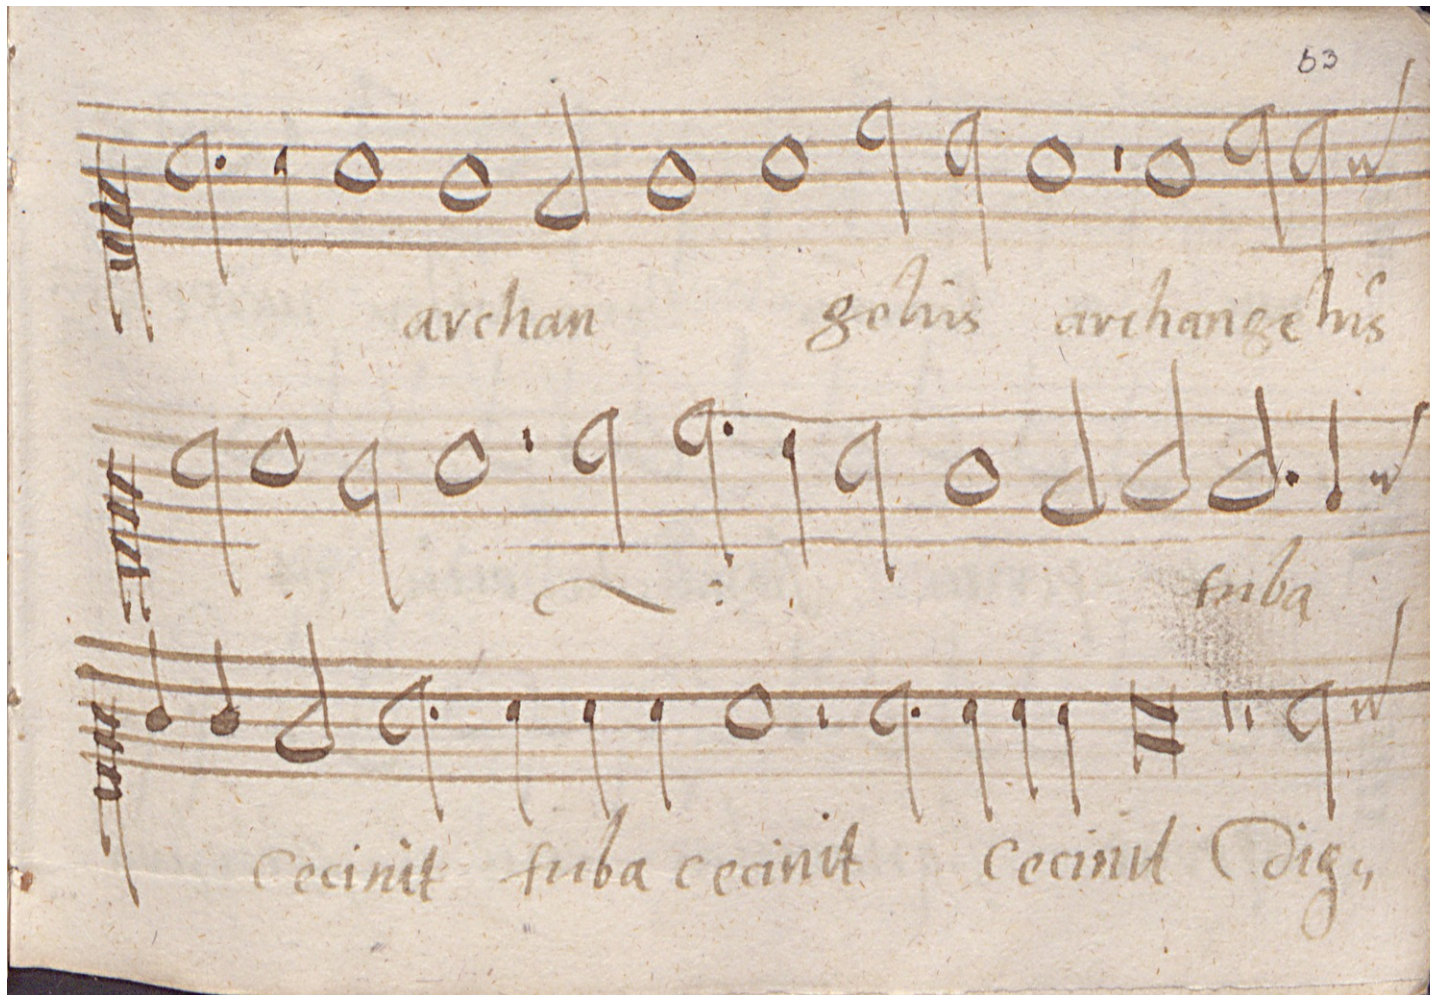 63
archan gelus archangelus
tuba
cecinit tuba cecinit cecinit Dig„